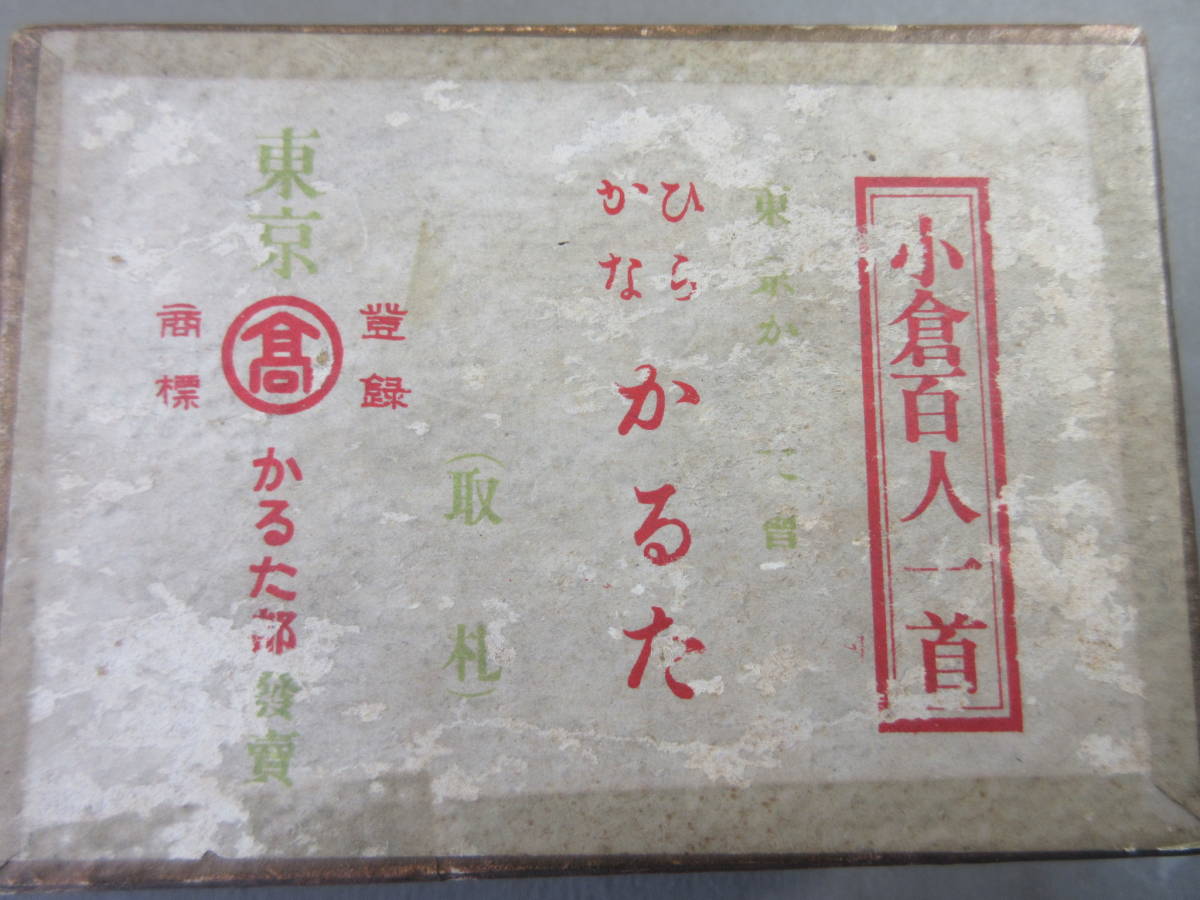 小倉百人一首
東京か
ひらかな
かるた
(取札)
登録
商標
東京
髙
かるた部
發賣